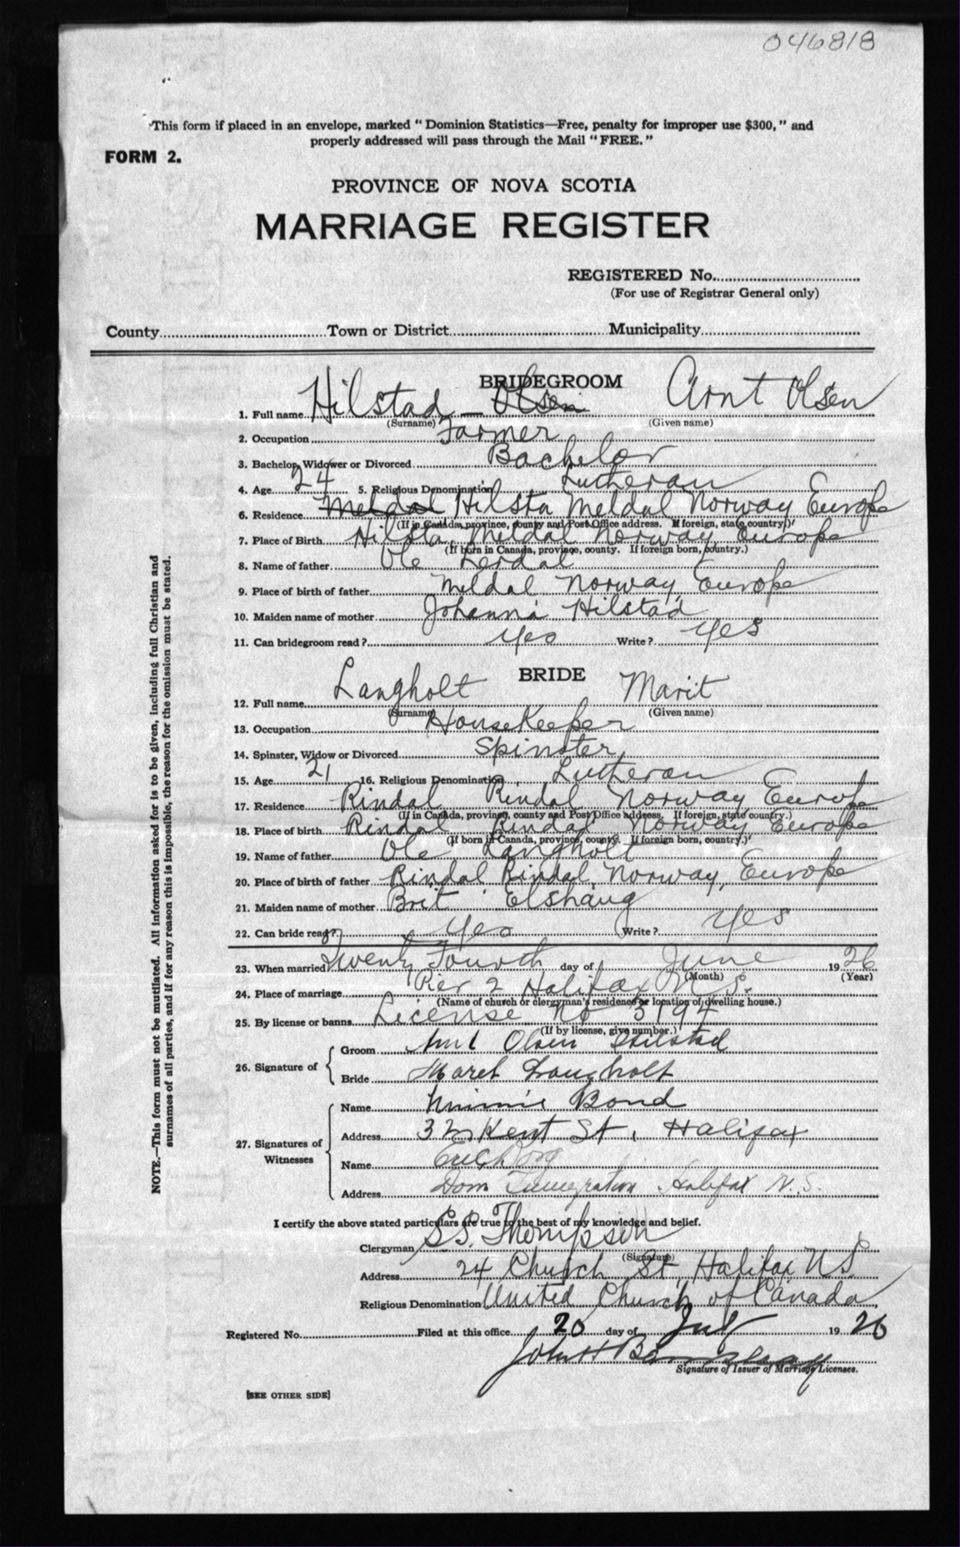 046818
This form if placed in an envelope, marked "Dominion Statistics—Free, penalty for improper use $300," and
properly addressed will pass through the Mail "FREE."
FORM 2.
PROVINCE OF NOVA SCOTIA
MARRIAGE REGISTER
REGISTERED No.
(For use of Registrar General only)
County Town or District Municipality
BRIDEGROOM
1. Full name Hilstad Olsen Arnt Olsen
(Surname) (Given name)
2. Occupation Farmer
3. Bachelor, Widower or Divorced Bachelor
4. Age 24 5. Religious Denomination Lutheran
6. Residence Meldal Hilsta Meldal Norway Europe
(If in Canada, province, county and Post Office address. If foreign, state country.)
7. Place of Birth Hilsta, Meldal Norway Europe
(If born in Canada, province, county. If foreign born, country.)
8. Name of father Ole Lerdal
9. Place of birth of father Meldal Norway Europe
10. Maiden name of mother Johanna Hilstad
11. Can bridegroom read? Yes Write? Yes
BRIDE
12. Full name Langholt Marit
(Surname) (Given name)
13. Occupation HouseKeeper
14. Spinster, Widow or Divorced Spinster
15. Age 21 16. Religious Denomination Lutheran
17. Residence Rindal Rindal Norway Europe
(If in Canada, province, county and Post Office address. If foreign, state country.)
18. Place of birth Rindal Rindal Norway Europe
(If born in Canada, province, county. If foreign born, country.)
19. Name of father Ole Langholt
20. Place of birth of father Rindal Rindal, Norway, Europe
21. Maiden name of mother Brit Elshaug
22. Can bride read? Yes Write? Yes
23. When married Twenty Fourth day of June 1926
(Month) (Year)
24. Place of marriage Pier 2 Halifax N.S.
(Name of church or clergyman's residence or location of dwelling house.)
25. By license or banns License No 5194
(If by license, give number.)
26. Signature of Groom Arnt Olsen Hilstad
Bride Maret Langholt
27. Signatures of Witnesses
Name Minnie Bond
Address 32 Kent St, Halifax
Name
Address Dom Immigration Halifax N.S.
I certify the above stated particulars are true to the best of my knowledge and belief.
Clergyman S.S. Thompson
(Signature)
Address 24 Church St, Halifax N.S.
Religious Denomination United Church of Canada
Registered No. Filed at this office 20 day of July 1926
John H
Signature of Issuer of Marriage Licenses.
[SEE OTHER SIDE]
NOTE.—This form must not be mutilated. All information asked for is to be given, including full Christian and
surnames of all parties, and if for any reason this is impossible, the reason for the omission must be stated.